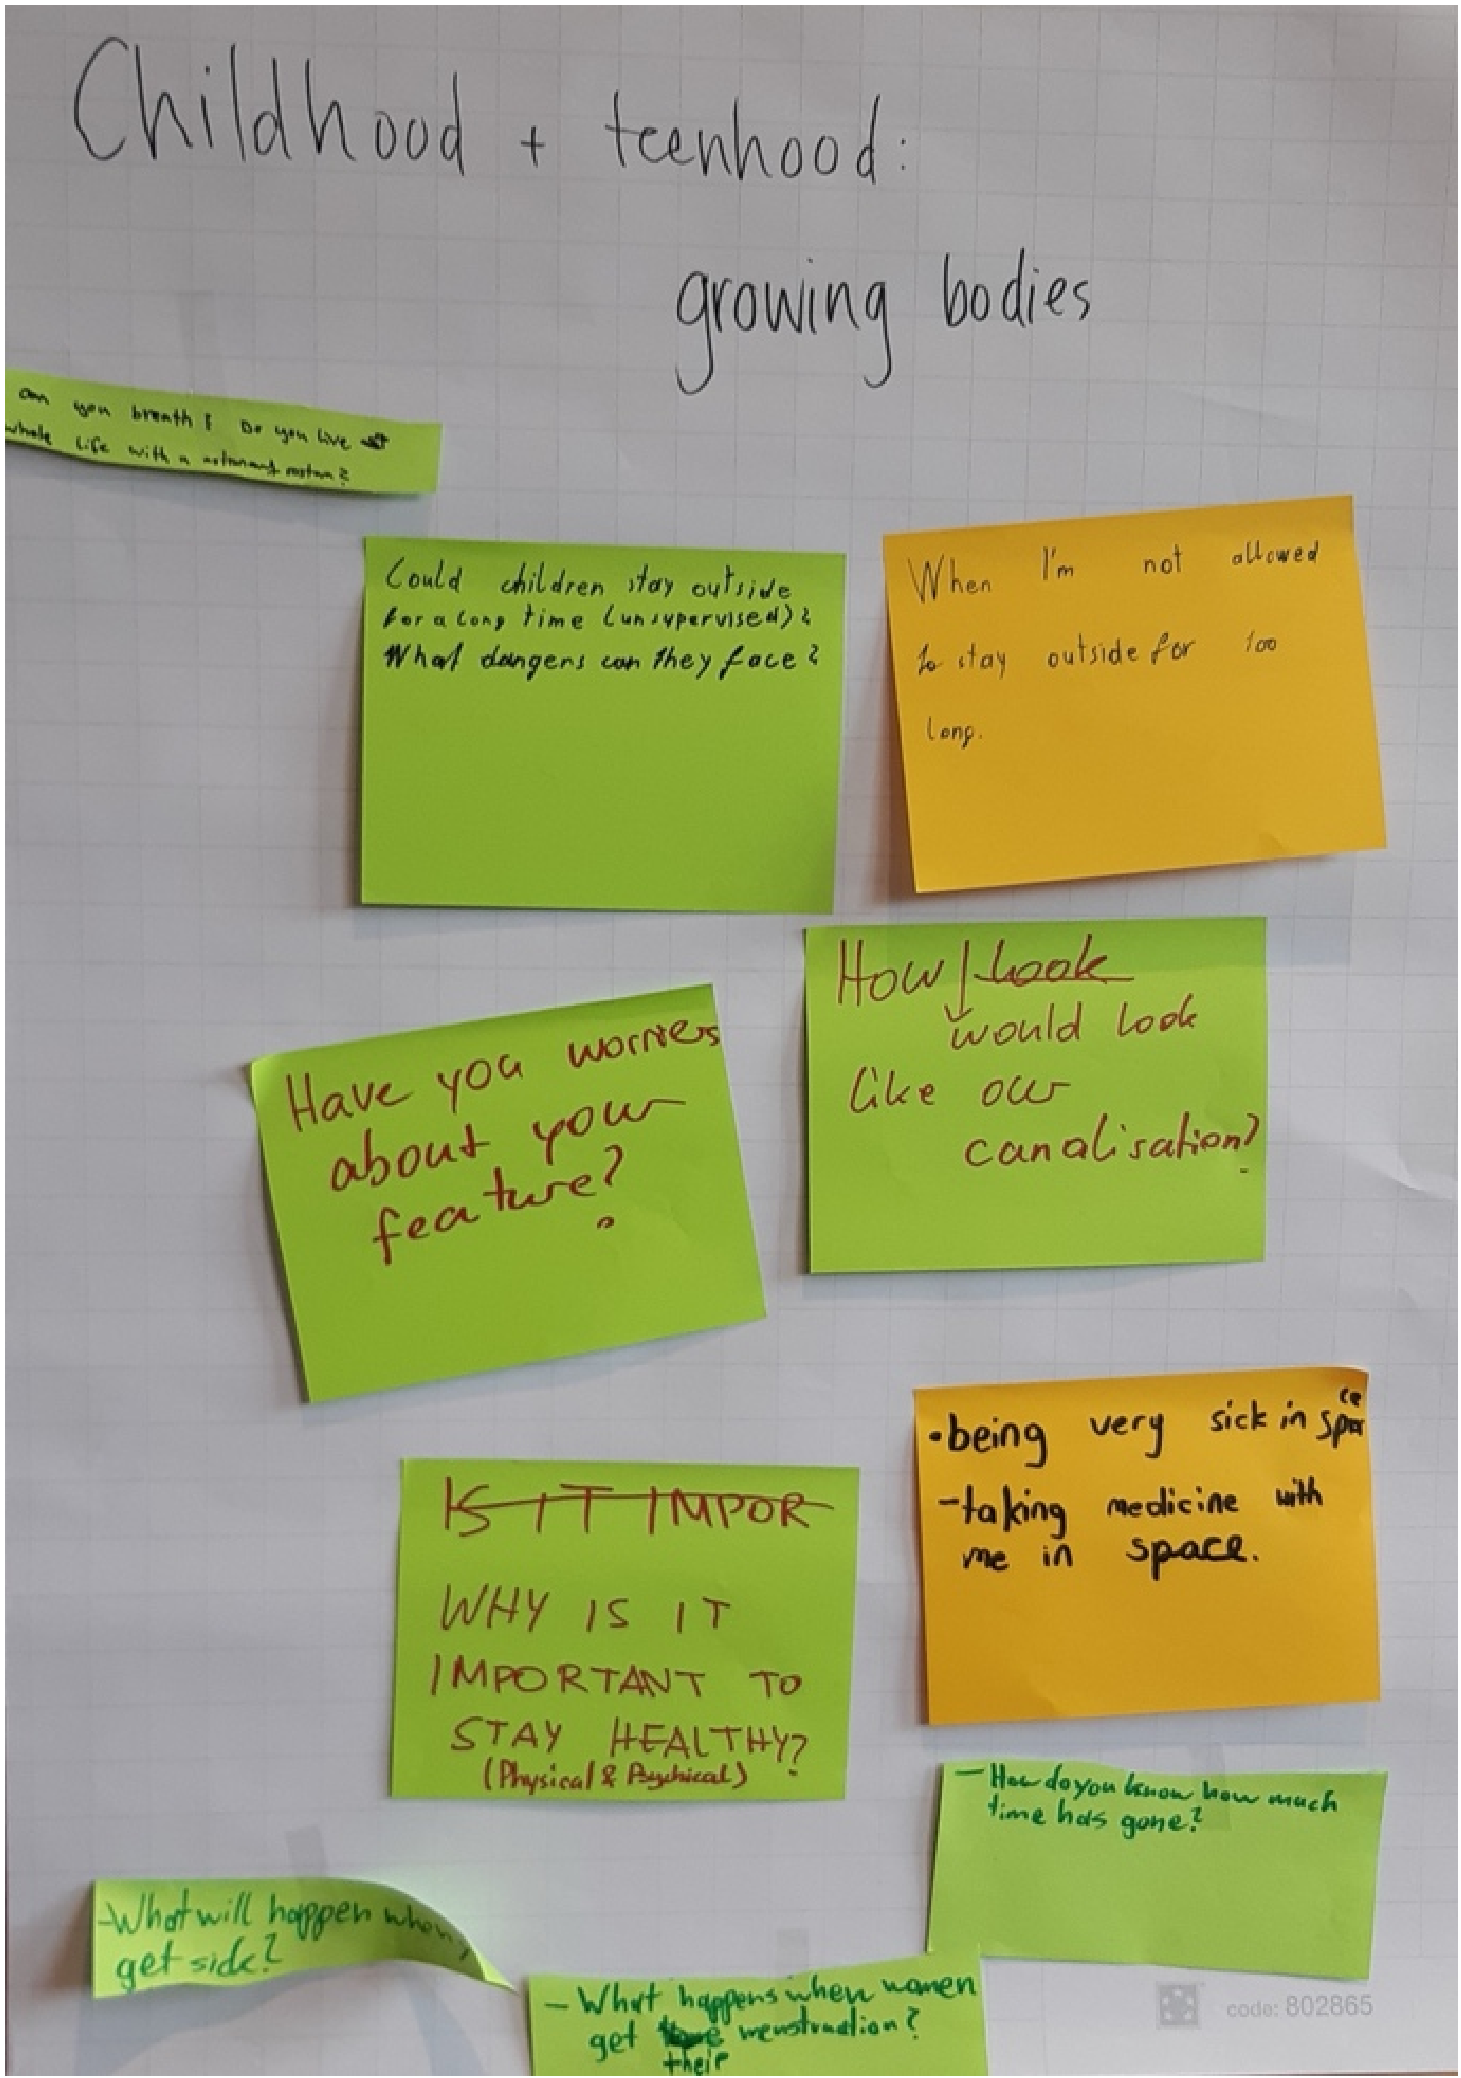 Childhood + teenhood:
growing bodies
can you breath? Do you live
whole life with a
Could children stay outside
for a long time (unsupervised)?
What dangers can they face?
When I'm not allowed
to stay outside for too
long.
Have you worries
about your
feature?
How look
would look
like our
canalisation?
IS IT IMPOR
WHY IS IT
IMPORTANT TO
STAY HEALTHY?
(Physical & Psychical)
•being very sick in space
-taking medicine with
me in space.
- How do you know how much
time has gone?
-What will happen when
get sick?
- What happens when women
get menstruation?
their
code: 802865